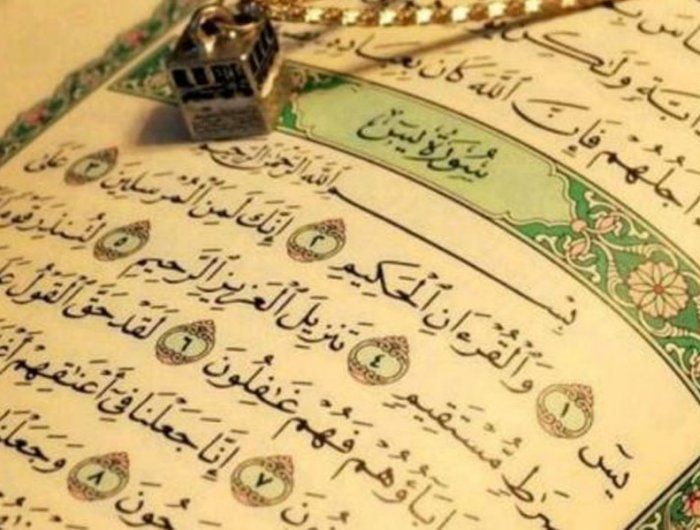 ابَّةٍ وَلَٰكِن
أَجَلُهُمْ فَإِنَّ ٱللَّهَ كَانَ بِعِبَادِهِ
سُورَةُ يسٓ
بِسْمِ ٱللَّهِ ٱلرَّحْمَٰنِ ٱلرَّحِيمِ
يسٓ ١ وَٱلْقُرْءَانِ ٱلْحَكِيمِ ٢ إِنَّكَ لَمِنَ ٱلْمُرْسَلِينَ ٣ عَلَىٰ
صِرَٰطٍ مُّسْتَقِيمٍ ٤ تَنزِيلَ ٱلْعَزِيزِ ٱلرَّحِيمِ ٥ لِتُنذِرَ قَوْمًا
ءَابَآؤُهُمْ فَهُمْ غَٰفِلُونَ ٦ لَقَدْ حَقَّ ٱلْقَوْلُ عَلَ
ونَ ٧ إِنَّا جَعَلْنَا فِىٓ أَعْنَٰقِهِمْ أَغْ
حُونَ ٨ وَجَعَلْنَا